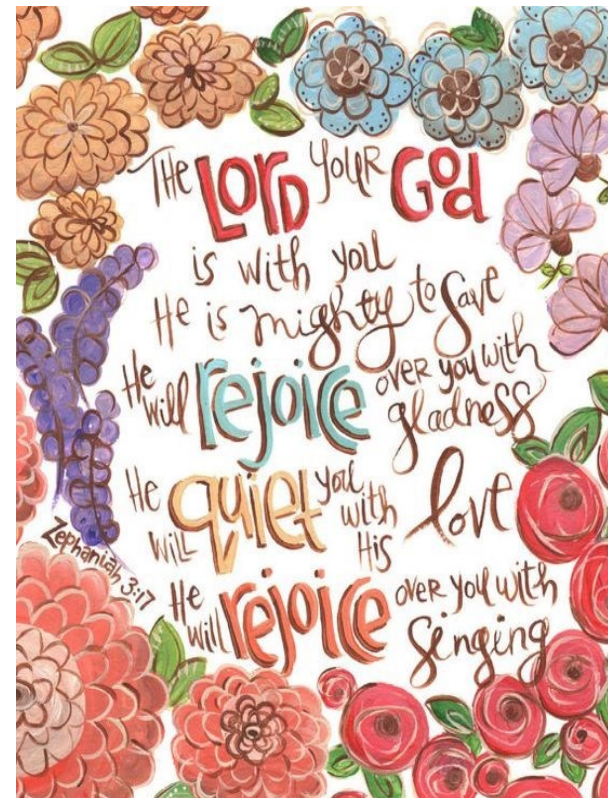 The LORD your God
is with you
He is mighty to save
He will rejoice over you with gladness
He will quiet you with His love
He will rejoice over you with singing
Zephaniah 3:17